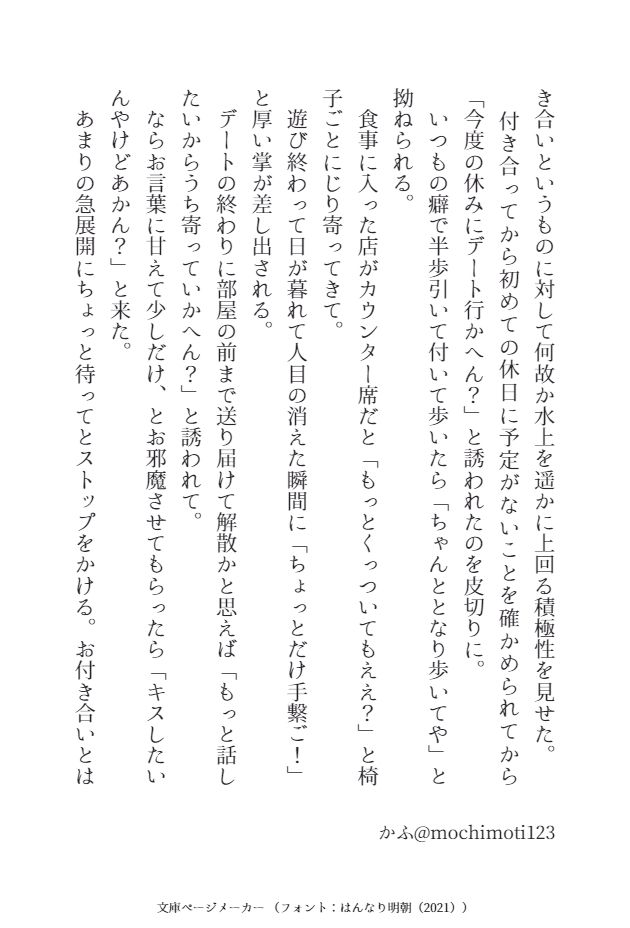 き合いというものに対して何故か水上を遥かに上回る積極性を見せた。
　付き合ってから初めての休日に予定がないことを確かめられてから
「今度の休みにデート行かへん？」と誘われたのを皮切りに。
　いつもの癖で半歩引いて付いて歩いたら「ちゃんととなり歩いてや」と
拗ねられる。
　食事に入った店がカウンター席だと「もっとくっついてもええ？」と椅
子ごとにじり寄ってきて。
　遊び終わって日が暮れて人目の消えた瞬間に「ちょっとだけ手繋ご！」
と厚い掌が差し出される。
　デートの終わりに部屋の前まで送り届けて解散かと思えば「もっと話し
たいからうち寄っていかへん？」と誘われて。
　ならお言葉に甘えて少しだけ、とお邪魔させてもらったら「キスしたい
んやけどあかん？」と来た。
　あまりの急展開にちょっと待ってとストップをかける。お付き合いとは
かふ@mochimoti123
文庫ページメーカー （フォント：はんなり明朝（2021））